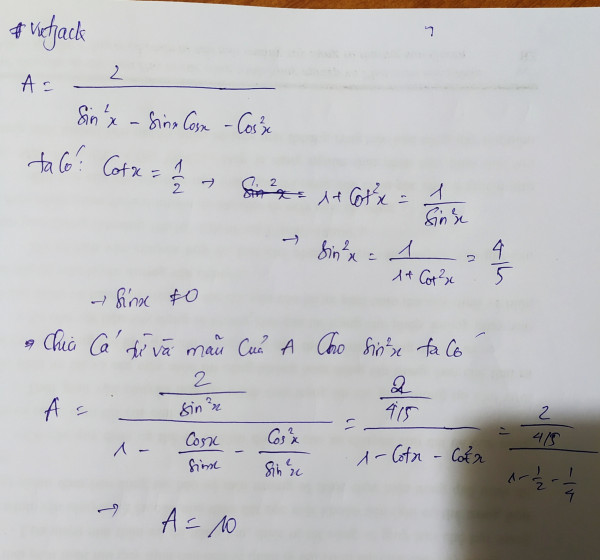 # Vietjack
7
A = 2 / (sin²x - sinx cosx - cos²x)
ta có: cotx = 1/2 → 1 + cot²x = 1/sin²x
→ sin²x = 1/(1 + cot²x) = 4/5
→ sinx ≠ 0
Chia cả tử và mẫu của A cho sin²x ta có
A = (2/sin²x) / (1 - cosx/sinx - cos²x/sin²x) = (2/(4/5)) / (1 - cotx - cot²x) = (2/(4/5)) / (1 - 1/2 - 1/4)
→ A = 10